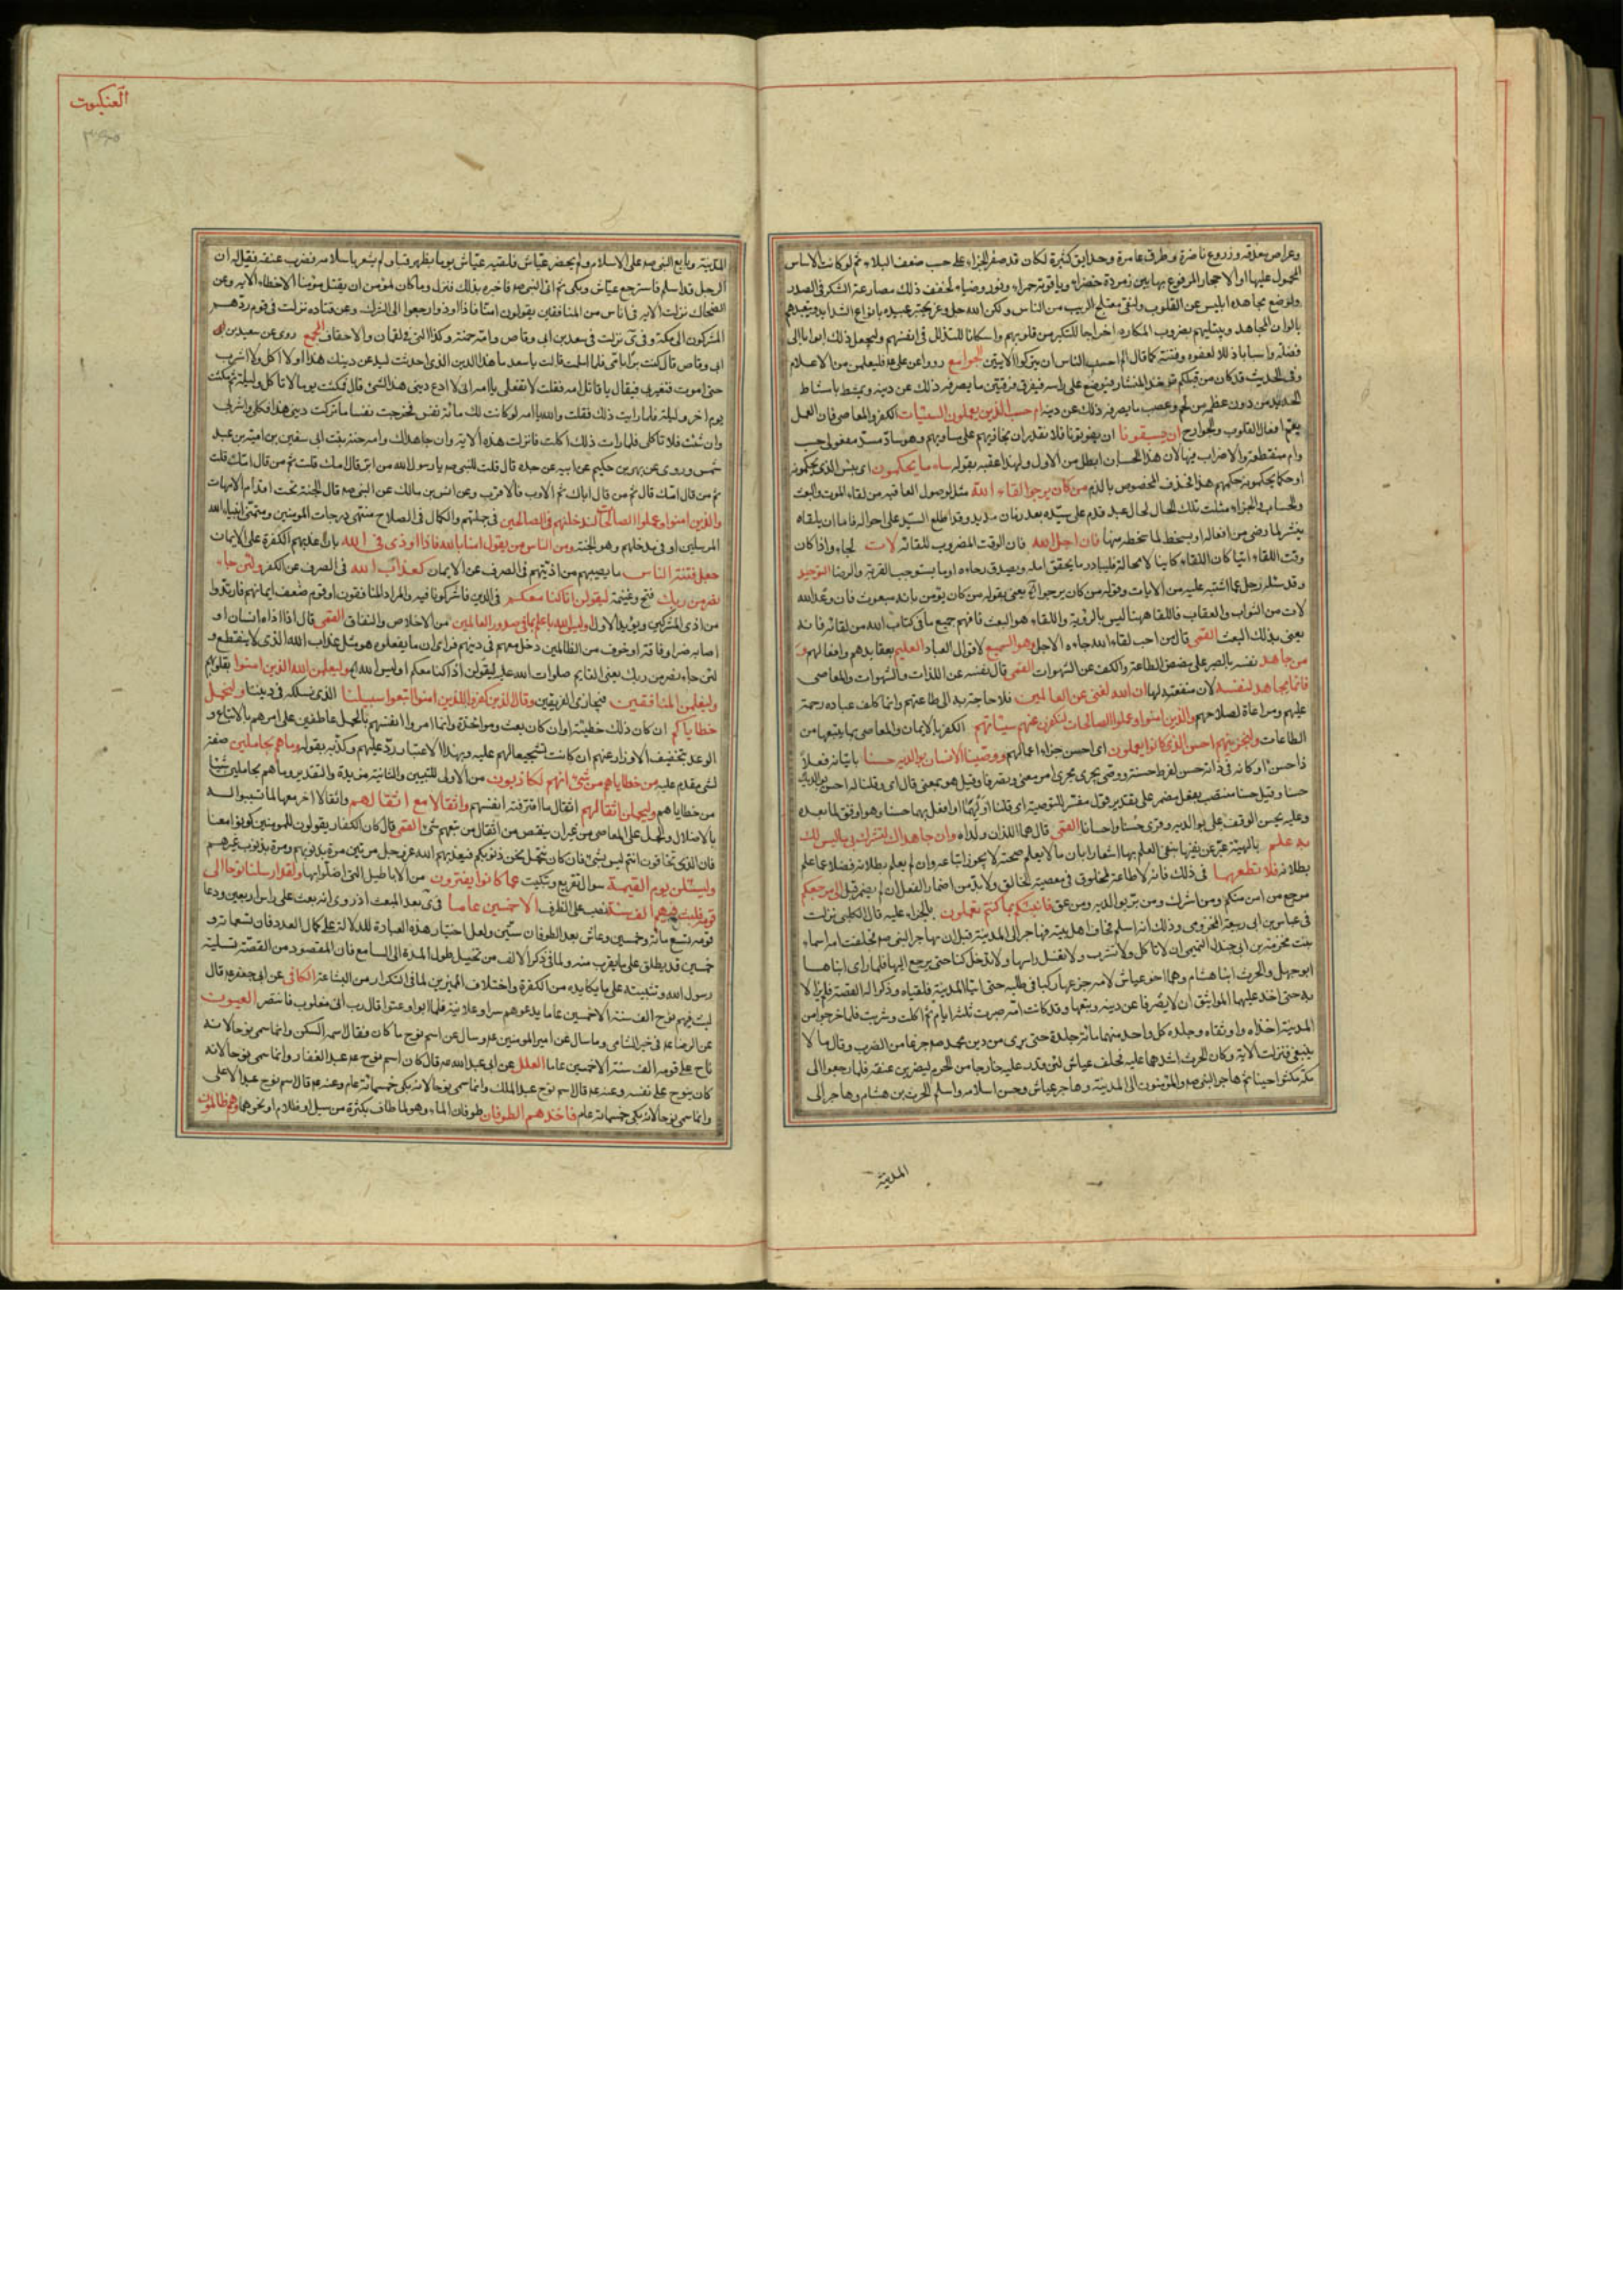 العنكبوت
وعراص مغدقة وزروع ناضرة وطرق عامرة وحدايق كثيرة لكان قد صغر الجزاء على حسب ضعف البلاء ثم لو كانت الاساس
المحمول عليها او الاحجار المرفوع بها بين زمردة خضراء وياقوتة حمراء ونور وضياء لخفف ذلك مصارعة الشك فى الصدر
ولوضع مجاهدة ابليس عن القلوب ولنفى معتلج الريب من الناس ولكن الله جل وعز يختبر عبيده بانواع الشدايد ويتعبدهم
بالوان المجاهد ويبتليهم بضروب المكاره اخراجا للتكبر من قلوبهم واسكانا للتذلل فى انفسهم وليجعل ذلك ابوابا الى
فضله واسبابا ذللا لعفوه وفتنته كما قال الم احسب الناس ان يتركوا الآيتين الجوامع رووا عن على فليعلمن من الاعلام
وفى الحديث قد كان من قبلكم يؤخذ فيوضع المنشار على راسه فيفرق فرقتين ما يصرفه ذلك عن دينه ويمشط بامشاط
الحديد من دون عظمه من لحم وعصب ما يصرفه ذلك عن دينه ام حسب الذين يعملون السيئات الكفر والمعاصى فان العمل
يعم افعال القلوب والجوارح ان يسبقونا ان يفوتونا فلا نقدر ان نجازيهم على مساويهم وهو ساد مسد مفعولى حسب
وام منقطعة والاضراب فيها لان هذا الحسبان ابطل من الاول ولهذا عقبه بقوله ساء ما يحكمون اى بئس الذى يحكمونه
او حكما يحكمونه حكمهم هذا فحذف المخصوص بالذم من كان يرجوا لقاء الله مثل لوصول العاقبة من لقاء الموت والبعث
والحساب والجزاء مثلت تلك الحال بحال عبد قدم على سيده بعد زمان مديد وقد اطلع السيد على احواله فاما ان يلقاه
ببشر لما رضى من افعاله او بسخط لما سخطه منها فان اجل الله فان الوقت المضروب للقائه لات لجاء واذا كان
وقت اللقاء آتيا كان اللقاء كاينا لا محالة فليبادر ما يحقق امله ويصدق رجاءه او ما يستوجب القربة والرضا التوحيد
وقد سئله رجل عما اشتبه عليه من الايات وقوله من كان يرجوا يعنى بقوله من كان يؤمن بانه مبعوث فان وعد الله
لات من الثواب والعقاب فاللقاء ههنا ليس بالرؤية واللقاء هو البعث فافهم جميع ما فى كتاب الله من لقائه فانه
يعنى بذلك البعث القمى قال من احب لقاء الله جاءه الاجل وهو السميع لاقوال العباد العليم بعقايدهم وافعالهم و
من جاهد نفسه بالصبر على مضض الطاعة والكف عن الشهوات القمى قال نفسه عن اللذات والشهوات والمعاصى
فانما يجاهد لنفسه لان منفعته لها ان الله لغنى عن العالمين فلا حاجة به الى طاعتهم وانما كلف عباده رحمة
عليهم ومراعاة لصلاحهم والذين امنوا وعملوا الصالحات لنكفرن عنهم سيئاتهم الكفر بالايمان والمعاصى بما يتبعها من
الطاعات ولنجزينهم احسن الذى كانوا يعملون اى احسن جزاء اعمالهم ووصينا الانسان بوالديه حسنا بايتائه فعلا
ذا حسن او كانه فى ذاته حسن لفرط حسنه ووصى يجرى مجرى امر معنى وتصرفا وقيل هو بمعنى قال اى وقلنا له احسن بوالديك
حسنا وقيل حسنا منتصب بفعل مضمر على تقدير قول مفسر للتوصية اى قلنا اولهما او افعل بهما حسنا وهو اوفق لما بعده
وعليه يحسن الوقف على بوالديه وقرى حسنا واحسانا القمى قال هما اللذان ولداه وان جاهداك لتشرك بى ما ليس لك
به علم بالهيته عبر عن نفيها بنفى العلم بها اشعارا بان ما لا يعلم صحته لا يجوز اتباعه وان لم يعلم بطلانه فضلا عما علم
بطلانه فلا تطعهما فى ذلك فانه لا طاعة لمخلوق فى معصية الخالق ولا بد من اضمار القول ان لم يضمر قبل الى مرجعكم
مرجع من امن منكم ومن اشرك ومن بر بوالديه ومن عق فانبئكم بما كنتم تعملون بالجزاء عليه قال الكلبى نزلت
فى عياش بن ابى ربيعة المخزومى وذلك انه اسلم فخاف اهل بيته فهاجر الى المدينة قبل ان يهاجر النبى ص فحلفت امه اسماء
بنت مخرمة بن ابى جندل التميمى ان لا تاكل ولا تشرب ولا تغسل راسها ولا تدخل كنا حتى يرجع اليها فلما راى ابناها
ابو جهل والحرث ابنا هشام وهما اخو عياش لامه جزعها ركبا فى طلبه حتى اتيا المدينة فلقياه وذكرا له القصة فلم يزالا
به حتى اخذ عليهما المواثيق ان لا يصرفا عن دينه وتبعهما وقد كانت امه صبرت ثلثة ايام ثم اكلت وشربت فلما خرجوا من
المدينة اخذاه واوثقاه وجلده كل واحد منهما مائة جلدة حتى برى من دين محمد ص جزعا من الضرب وقال ما لا
ينبغى فنزلت الآية وكان الحرث اشدهما عليه فحلف عياش لئن قدر عليه خارجا من الحرم ليضربن عنقه فلما رجعوا الى
مكة مكثوا حينا ثم هاجر النبى ص والمؤمنون الى المدينة وهاجر عياش وحسن اسلامه واسلم الحرث بن هشام وهاجر الى
المدينة
المدينة وبايع النبى ص على الاسلام ولم يحضر عياش فلقيه عياش يوما بظهر قبا ولم يشعر باسلامه فضرب عنقه فقيل له ان
الرجل قد اسلم فاسترجع عياش وبكى ثم اتى النبى ص فاخبره بذلك فنزل وما كان لمؤمن ان يقتل مؤمنا الا خطاء الآية وعن
الضحاك نزلت الآية فى اناس من المنافقين يقولون امنا فاذا اوذوا رجعوا الى الشرك وعن قتادة نزلت فى قوم ردهم
المشركون الى مكة وفى نزلت فى سعد بن ابى وقاص وامه حمنة وكذا التى فى لقمان والاحقاف المجمع روى عن سعد بن ابى
ابى وقاص قال كنت برا بامى فلما اسلمت قالت يا سعد ما هذا الدين الذى احدثت لتدعن دينك هذا او لا اكل ولا اشرب
حتى اموت فتعير بى فيقال يا قاتل امه فقلت لا تفعلى يا امه انى لا ادع دينى هذا لشىء قال فمكثت يوما لا تاكل وليلة ثم مكثت
يوما اخر وليلة فلما رايت ذلك فقلت والله يا امه لو كانت لك مائة نفس فخرجت نفسا نفسا ما تركت دينى هذا فكلى واشربى
وان شئت فلا تاكلى فلما رات ذلك اكلت فانزلت هذه الآية وان جاهداك وامه حمنة بنت ابى سفين بن امية بن عبد
شمس وروى عن بهز بن حكيم عن ابيه عن جده قال قلت للنبى ص يا رسول الله من ابر قال امك قلت ثم من قال امك قلت
ثم من قال امك قال ثم من قال اباك ثم الاقرب فالاقرب وعن انس بن مالك عن النبى ص قال الجنة تحت اقدام الامهات
والذين امنوا وعملوا الصالحات لندخلنهم فى الصالحين فى جملتهم والكمال فى الصلاح منتهى درجات المؤمنين ومتمنى انبياء الله
المرسلين او فى مدخلهم وهو الجنة ومن الناس من يقول امنا بالله فاذا اوذى فى الله بان عذبهم الكفرة على الايمان
جعل فتنة الناس ما يصيبهم من اذيتهم فى الصرف عن الايمان كعذاب الله فى الصرف عن الكفر ولئن جاء
نصر من ربك فتح وغنيمة ليقولن انا كنا معكم فى الدين فاشركونا فيه والمراد المنافقون او قوم ضعف ايمانهم فارتدوا
من اذى المشركين ويؤيد الاول اوليس الله باعلم بما فى صدور العالمين من الاخلاص والنفاق القمى قال اذا اذاه انسان او
اصابه ضر او فاقة او خوف من الظالمين دخل معهم فى دينهم فراى ان ما يفعلونه هو مثل عذاب الله الذى لا ينقطع و
لئن جاء نصر من ربك يعنى القايم صلوات الله عليه ليقولن انا كنا معكم اوليس الله وليعلمن الله الذين امنوا بقلوبهم
وليعلمن المنافقين فيجازى الفريقين وقال الذين كفروا للذين امنوا اتبعوا سبيلنا الذى نسلكه فى ديننا ولنحمل
خطاياكم ان كان ذلك خطيئة او ان كان بعث ومؤاخذة وانما امروا انفسهم بالحمل عاطفين على امرهم بالاتباع و
الوعد بتخفيف الاوزار عنهم ان كانت تشجيعا لهم عليه وبهذا الاعتبار رد عليهم وكذبهم بقوله وما هم بحاملين صفة
لشىء مقدم عليه من خطاياهم من شىء انهم لكاذبون من الاولى للتبيين والثانية مزيدة والتقدير وما هم بحاملين شيئا
من خطاياهم وليحملن اثقالهم اثقال ما اقترفته انفسهم واثقالا مع اثقالهم واثقالا اخر معها لما تسببوا له
بالاضلال والحمل على المعاصى من غير ان ينقص من اثقال من تبعهم شىء القمى قال كان الكفار يقولون للمؤمنين كونوا معنا
فان الذى تخافون انتم ليس بشىء فان كان نتحمل نحن ذنوبكم فيعذبهم الله عز وجل مرتين مرة بذنوبهم ومرة بذنوب غيرهم
وليسئلن يوم القيمة سؤال تقريع وتبكيت عما كانوا يفترون من الاباطيل التى اضلوا بها ولقد ارسلنا نوحا الى
قومه فلبث فيهم الف سنة نصب على الظرف الا خمسين عاما فى بعد المبعث اذ روى انه بعث على راس اربعين ودعا
قومه تسع مائة وخمسين وعاش بعد الطوفان ستين ولعل اختيار هذه العبارة للدلالة على كمال العدد فان تسعمائة و
خمسين قد يطلق على ما يقرب منه ولما فى ذكر الالف من تخييل طول المدة الى السامع فان المقصود من القصة تسلية
رسول الله وتثبيته على ما يكابده من الكفرة واختلاف المميزين لما فى التكرار من البشاعة الكافى عن ابى جعفر قال
لبث فيهم نوح الف سنة الا خمسين عاما يدعوهم سرا وعلانية فلما ابوا وعتوا قال رب انى مغلوب فانتصر العيون
عن الرضا فى خبر الشامى وما سال عن امير المؤمنين وسال عن اسم نوح ما كان فقال اسمه السكن وانما سمى نوحا لانه
ناح على قومه الف سنة الا خمسين عاما العلل عن ابى عبد الله قال كان اسم نوح عبد الغفار وانما سمى نوحا لانه
كان ينوح على نفسه وعنه قال اسم نوح عبد الملك وانما سمى نوحا لانه بكى خمسمائة عام وعنه قال اسم نوح عبد الاعلى
وانما سمى نوحا لانه بكى خمسمائة عام فاخذهم الطوفان طوفان الماء وهو لما طاف بكثرة من سيل او ظلام او نحوهما وهم ظالمون